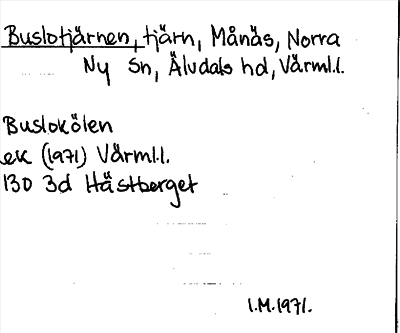 Buslotjärnen, tjärn, Månäs, Norra
Ny Sn, Älvdals hd, Värml.l.
Buslokölen
ek (1971) Värml.l.
130 3d Hästberget
I.M.1971.